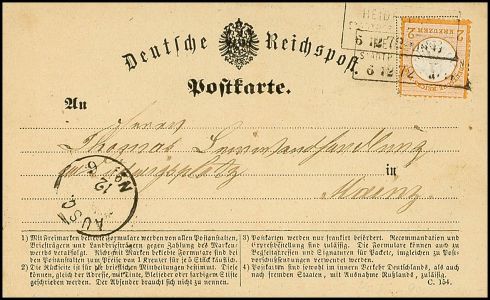 HEID
6 12 72
STADTP
6 12 72
2 KREUZER 2
Deutsche Reichspost.
Postkarte.
An
Herrn
Thomas Leinwandhandlung
Ludwigsplatz
in
Mainz
AUSG. No 1
6
12
1) Mit Freimarken beklebte Formulare werden von allen Postanstalten,
Briefträgern und Landbriefträgern gegen Zahlung des Marken-
werths verabfolgt. Nicht mit Marken beklebte Formulare sind bei
den Postanstalten zum Preis von 1 Kreuzer für je 5 Stück käuflich.
2) Die Rückseite ist für die brieflichen Mittheilungen bestimmt. Diese
können, gleich der Adresse, mit Tinte, Bleifeder oder farbigem Stifte
geschrieben werden. Der Absender braucht sich nicht zu nennen.
3) Postkarten werden nur frankirt befördert. Recommandation und
Expreßbestellung sind zulässig. Die Formulare können auch zu
Begleitadressen und Signaturen für Packete, imgleichen zu Post-
vorschußbriefen verwendet werden.
4) Postkarten sind sowohl im innern Verkehr Deutschlands, als auch
nach fremden Staaten, mit Ausnahme Rußlands, zulässig.
C. 154.